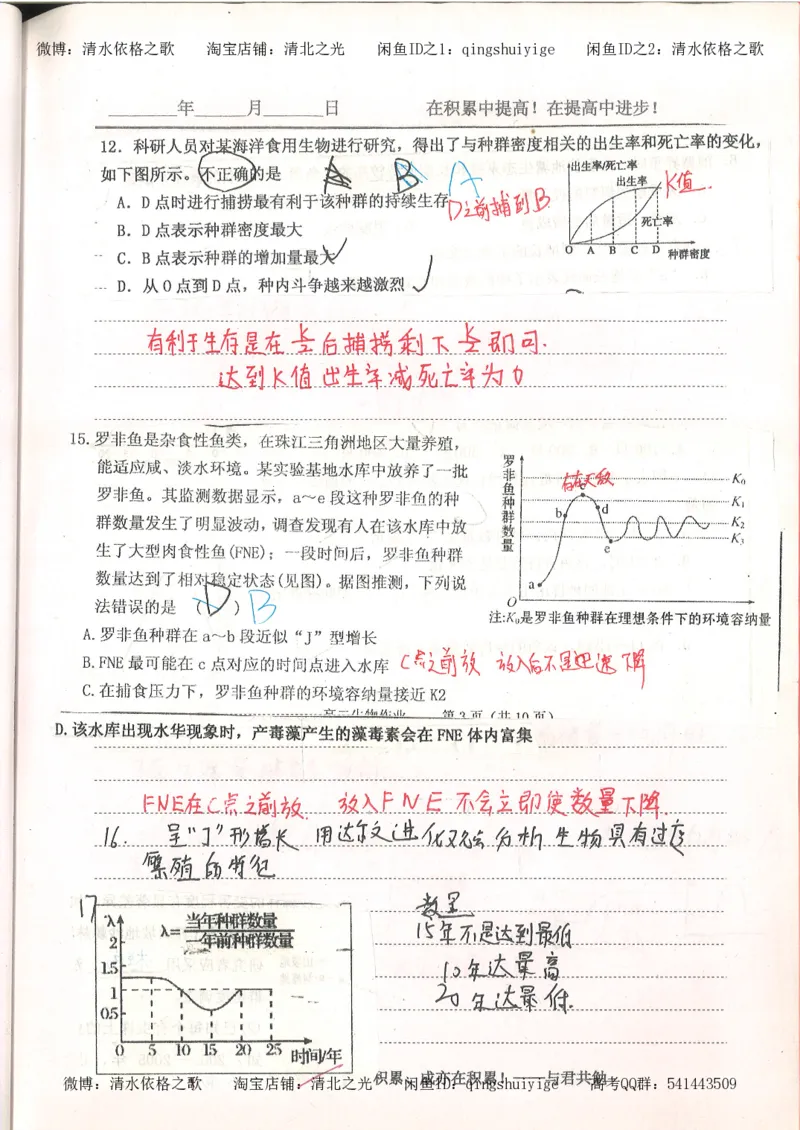 微博：清水依格之歌 淘宝店铺：清北之光 闲鱼ID之1：qingshuiyige 闲鱼ID之2：清水依格之歌
年 月 日 在积累中提高！在提高中进步！
12．科研人员对某海洋食用生物进行研究，得出了与种群密度相关的出生率和死亡率的变化，
如下图所示。不正确的是 B A
A．D点时进行捕捞最有利于该种群的持续生存 D之前捕到B
B．D点表示种群密度最大
C．B点表示种群的增加量最大
D．从O点到D点，种内斗争越来越激烈
出生率/死亡率
出生率
K值.
死亡率
O A B C D 种群密度
有利于生存是在K/2后捕捞剩下K/2即可.
达到K值出生率减死亡率为0
15.罗非鱼是杂食性鱼类，在珠江三角洲地区大量养殖，
能适应咸、淡水环境。某实验基地水库中放养了一批
罗非鱼。其监测数据显示，a～e段这种罗非鱼的种
群数量发生了明显波动，调查发现有人在该水库中放
生了大型肉食性鱼(FNE)；一段时间后，罗非鱼种群
数量达到了相对稳定状态(见图)。据图推测，下列说
法错误的是 （D） B
罗非鱼种群数量
存在天敌
K₀
K₁
K₂
K₃
b
c
d
e
a
O
注:K₀是罗非鱼种群在理想条件下的环境容纳量
A.罗非鱼种群在a～b段近似“J”型增长
B.FNE最可能在c点对应的时间点进入水库 C点之前放 放入后不是迅速下降
C.在捕食压力下，罗非鱼种群的环境容纳量接近K2
高二生物作业 第3页（共10页）
D.该水库出现水华现象时，产毒藻产生的藻毒素会在FNE体内富集
FNE在C点之前放. 放入FNE不会立即使数量下降.
16. 呈“J”形增长 用达尔文进化观点分析生物具有过度
繁殖的特征
17
λ
λ=当年种群数量/一年前种群数量
2
1.5
1
0.5
0 5 10 15 20 25 时间/年
数量
15年不是达到最低
10年达最高
20年达最低.
积累，成亦在积累！——与君共勉
微博：清水依格之歌 淘宝店铺：清北之光 闲鱼ID：qingshuiyige 高考QQ群：541443509